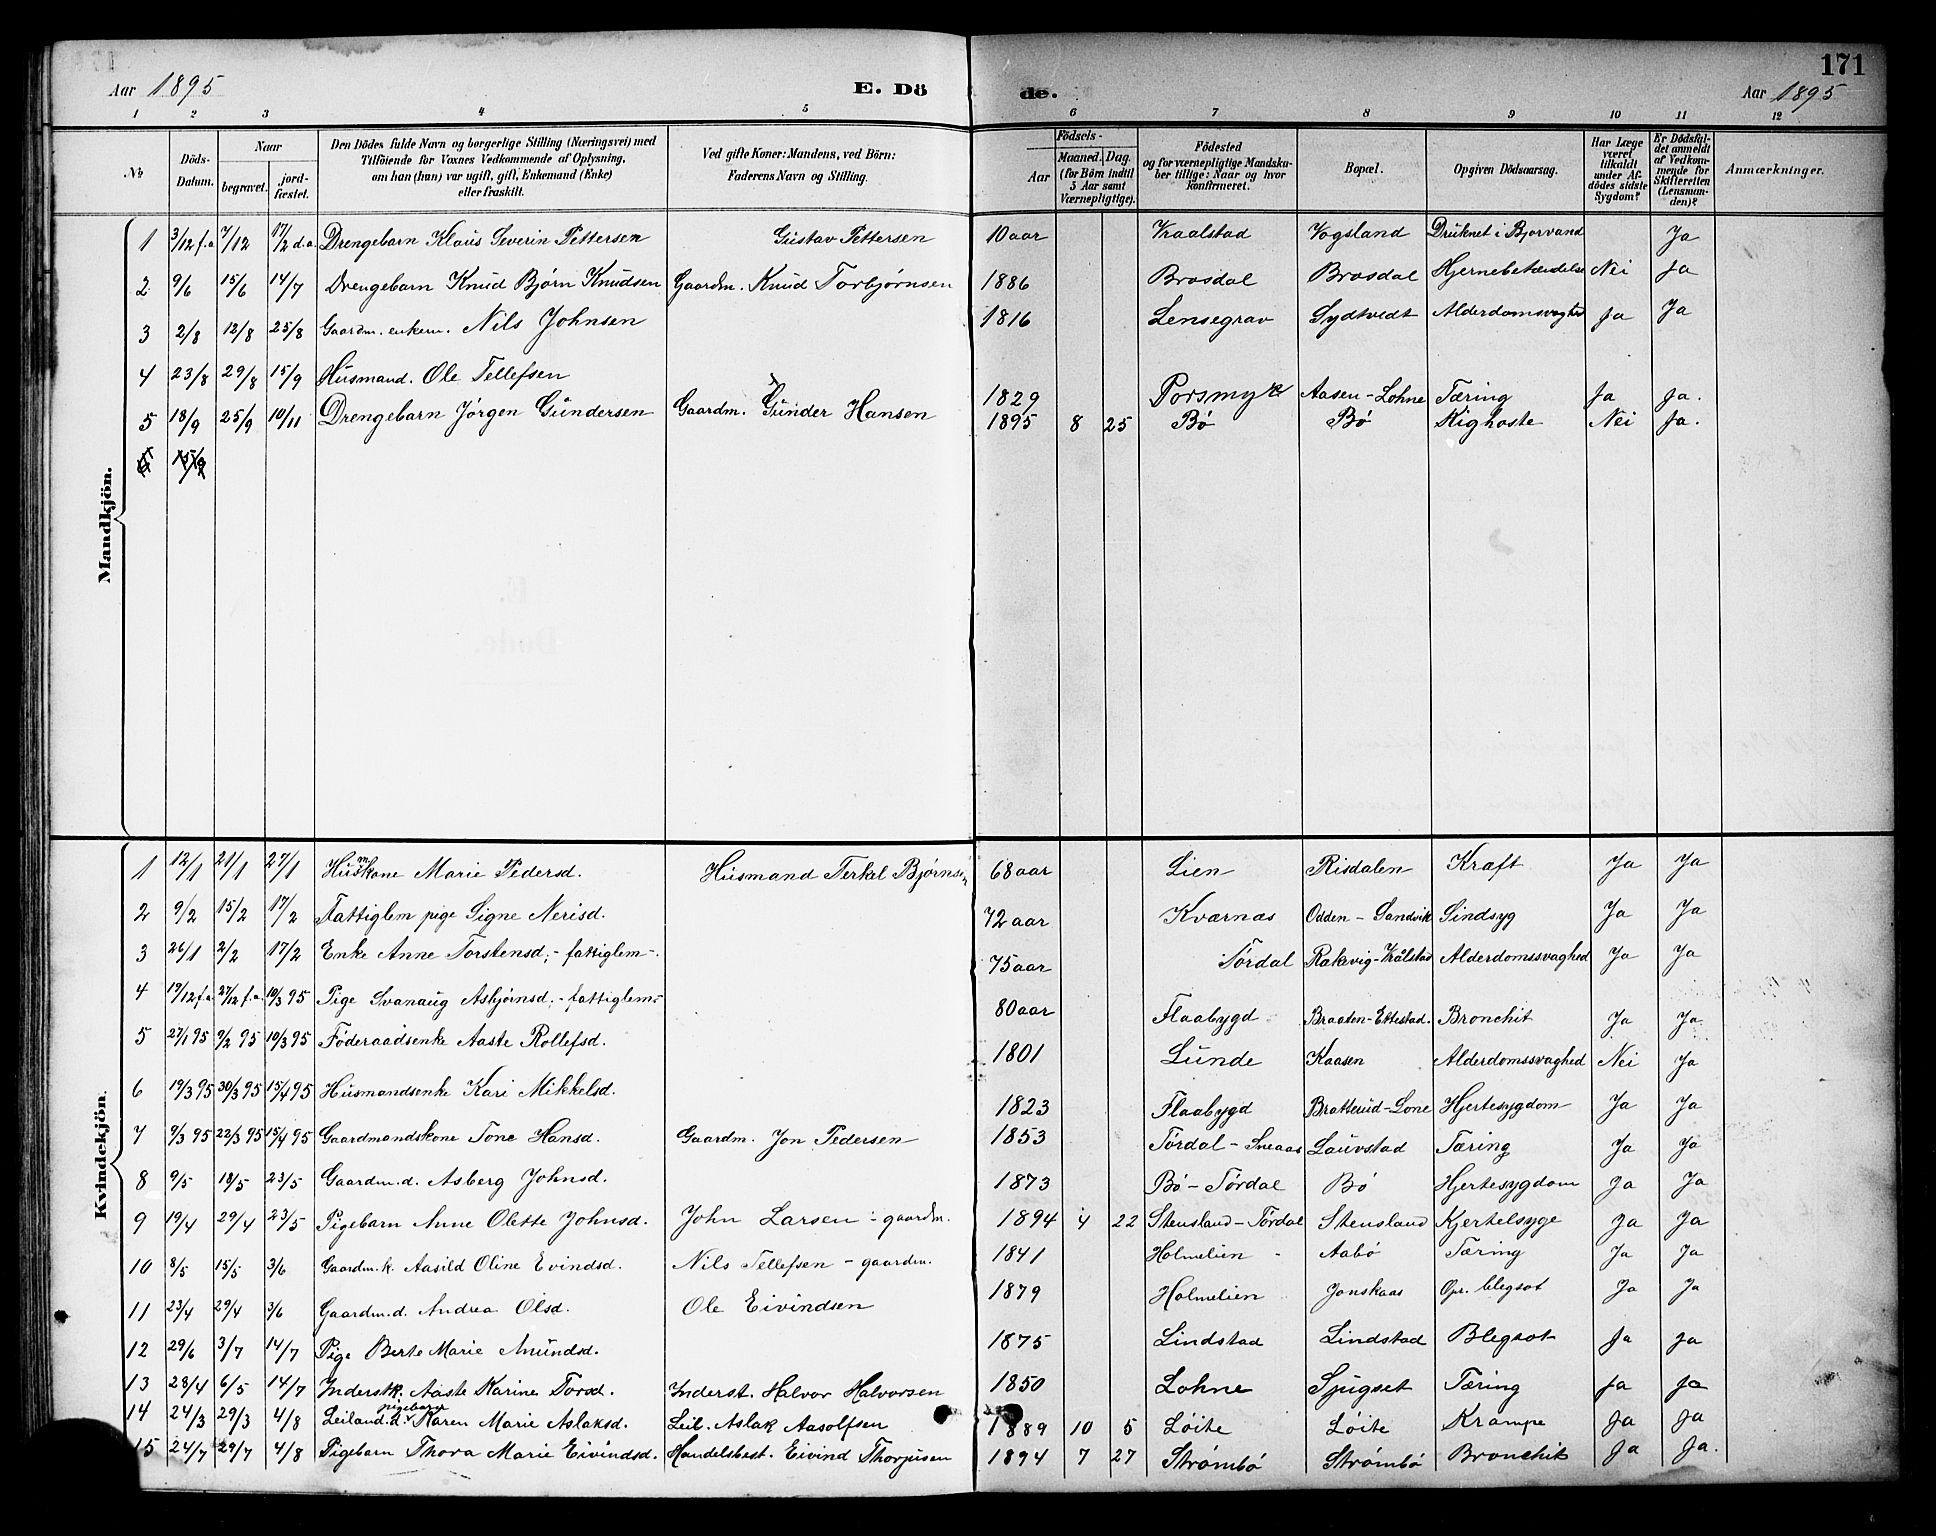 171
Aar 1895 E. Dö de. Aar 1895
1 2 3 4 5 6 7 8 9 10 11 12
№ Döds-Datum. Naar begravet. jord-fæstet. Den Dödes fulde Navn og borgerlige Stilling (Næringsvei) med Tilföiende for Voxnes Vedkommende af Oplysning, om han (hun) var ugift, gift, Enkemand (Enke) eller fraskilt. Ved gifte Koner: Mandens, ved Börn: Faderens Navn og Stilling. Födsels- Aar Maaned. Dag. (for Börn indtil 5 Aar samt Værnepligtige). Födested og for værnepligtige Mandskaber tillige: Naar og hvor konfirmeret. Bopæl. Opgiven Dödsaarsag. Har Læge været tilkaldt under Afdödes sidste Sygdom? Er Dödsfaldet anmeldt af Vedkommende for Skifteretten (Lensmanden)? Anmærkninger.
Mandkjön.
1 3/12 f.a. 7/12 17/2 d.a. Drengebarn Klaus Severin Pettersen Gustav Pettersen 10 aar Kraalstad Vogsland Druknet i Bjorvand Ja
2 9/6 15/6 14/7 Drengebarn Knud Bjørn Knudsen Gaardm. Knud Torbjørnsen 1886 Brosdal Brosdal Hjernebetændelse Nei Ja
3 2/8 12/8 25/8 Gaardm. enkem. Nils Johnsen 1816 Lensegrav Sydtvedt Alderdomsvaghed Ja Ja
4 23/8 29/8 15/9 Husmand. Ole Tellefsen 1829 Porsmyr Aasen-Lohne Tæring Ja Ja.
5 18/9 25/9 10/11 Drengebarn Jörgen Gundersen Gaardm. Gunder Hansen 1895 8 25 Bø Bø Kighoste Nei Ja.
Kvindekjön.
1 12/1 21/1 27/1 Husmkone Marie Pedersd. Husmand Terkel Bjørnsen 68 aar Lien Risdalen Kræft Ja Ja
2 9/2 15/2 17/2 Fattiglem pige Signe Nerisd. 72 aar Kværnæs Odden-Sandvik Sindsyg Ja Ja
3 26/1 2/2 17/2 Enke Anne Torstensd. - fattiglem -. 75 aar Tördal Rakevig-Kralstad Alderdomssvaghed Ja Ja
4 19/12 f.a. 27/12 f.a. 10/3 95 Pige Svanaug Asbjørnsd. - fattiglem - 80 aar Flaabygd Braaten-Ettestad. Bronchit Ja Ja
5 27/1 95 9/2 95 10/3 95 Föderaadsenke Aaste Rollefsd. 1801 Lunde Kaasen Alderdomssvaghed Nei Ja
6 19/3 95 30/3 95 15/4 95 Husmandsenke Kari Mikkelsd. 1823 Flaabygd Bratterud-Lone Hjertesygdom Ja Ja
7 9/3 95 22/3 95 15/4 95 Gaardmandskone Tone Hansd. Gaardm. Jon Pedersen 1853 Tördal-Sneaas Lauvstad Tæring Ja Ja
8 9/5 18/5 23/5 Gaardm. d. Asberg Johnsd. 1873 Bø-Tördal Bø Hjertesygdom Ja Ja
9 19/4 29/4 23/5 Pigebarn Anne Olette Johnsd. John Larsen - gaardm. 1894 4 22 Stensland-Tördal Stensland Kjertelsyge Ja Ja
10 8/5 15/5 3/6 Gaardm. k. Aasild Oline Evindsd. Nils Tellefsen - gaardm. 1841 Holmelien - Aabø Tæring Ja Ja
11 23/4 29/4 3/6 Gaardm. d. Andrea Olsd. Ole Eivindsen 1879 Holmelien Jonskaas Opr. blegsot Ja Ja
12 29/6 3/7 14/7 Pige Berte Marie Amundsd. 1875 Lindstad Lindstad Blegsot Ja Ja
13 28/4 6/5 14/7 Inderstk. Aaste Karine Torsd. Inderst. Halvor Halvorsen 1850 Lohne Sjugset Tæring Ja Ja
14 24/3 29/3 4/8 Leiland. d. pigebarn Karen Marie Aslaksd. Leil. Aslak Aasolfsen 1889 10 5 Löite Löite Krampe Ja Ja
15 24/7 29/7 4/8 Pigebarn Thora Marie Eivindsd. Handelsbest. Eivind Thorjusen 1894 7 27 Strømbø Strømbø Bronchit Ja Ja.